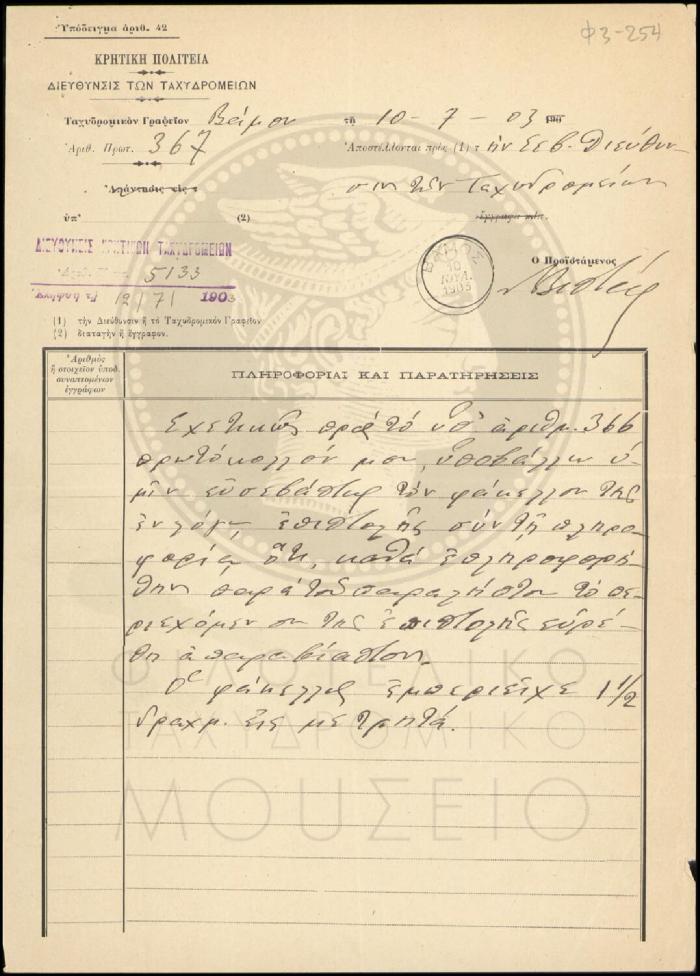 Ὑπόδειγμα ἀριθ. 42
Φ3-254
ΚΡΗΤΙΚΗ ΠΟΛΙΤΕΙΑ
ΔΙΕΥΘΥΝΣΙΣ ΤΩΝ ΤΑΧΥΔΡΟΜΕΙΩΝ
Ταχυδρομικὸν Γραφεῖον Βάμου τῇ 10-7-03 190
Ἀριθ. Πρωτ. 367 Ἀποστέλλονται πρὸς (1) τὴν Σεβ. Διεύθυν-
Ἀπάντησις εἰς τ σιν τῶν Ταχυδρομείων
ὑπ' (2) ἔγγραφα
ΔΙΕΥΘΥΝΣΙΣ ΚΡΗΤΙΚΩΝ ΤΑΧΥΔΡΟΜΕΙΩΝ
5133
12/7/1903
ΒΑΜΟΣ
10
ΙΟΥΛ.
1903
Ὁ Προϊστάμενος
(1) τὴν Διεύθυνσιν ἢ τὸ Ταχυδρομικὸν Γραφεῖον
(2) διαταγὴν ἢ ἔγγραφον.
Ἀριθμὸς
ἢ στοιχεῖον ὑποδ.
συναπτομένων
ἐγγράφων
ΠΛΗΡΟΦΟΡΙΑΙ ΚΑΙ ΠΑΡΑΤΗΡΗΣΕΙΣ
Σχετικῶς πρὸς τὸ ὑπ' ἀριθμ. 366
πρωτόκολλόν μου, ὑποβάλλω ὑ-
μῖν εὐσεβάστως τὸν φάκελλον τῆς
ἐν λόγῳ ἐπιστολῆς σὺν τῇ πληρο-
φορίᾳ ὅτι, καθὰ ἐπληροφορή-
θην παρὰ τοῦ παραλήπτου τὸ πε-
ριεχόμενον τῆς ἐπιστολῆς εὑρέ-
θη ἀπαραβίαστον.
Ὁ φάκελλος ἐμπεριεῖχε 1 1/2
δραχμ. εἰς μετρητά.
ΦΙΛΟΤΕΛΙΚΟ
ΤΑΧΥΔΡΟΜΙΚΟ
ΜΟΥΣΕΙΟ